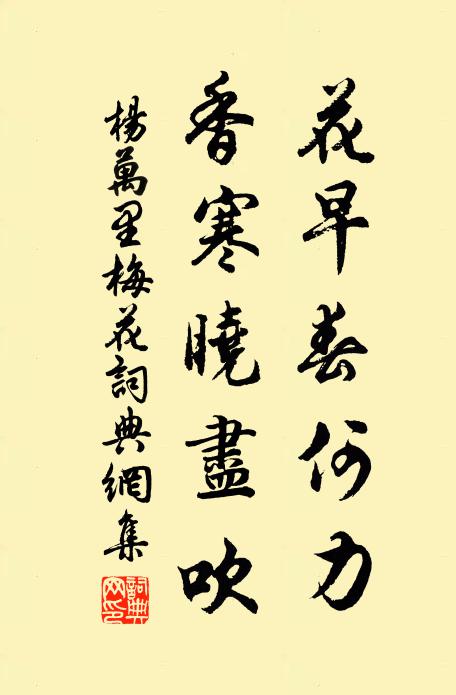 花早春何力
香寒曉盡吹
楊萬里梅花詞典網集
詞典網印